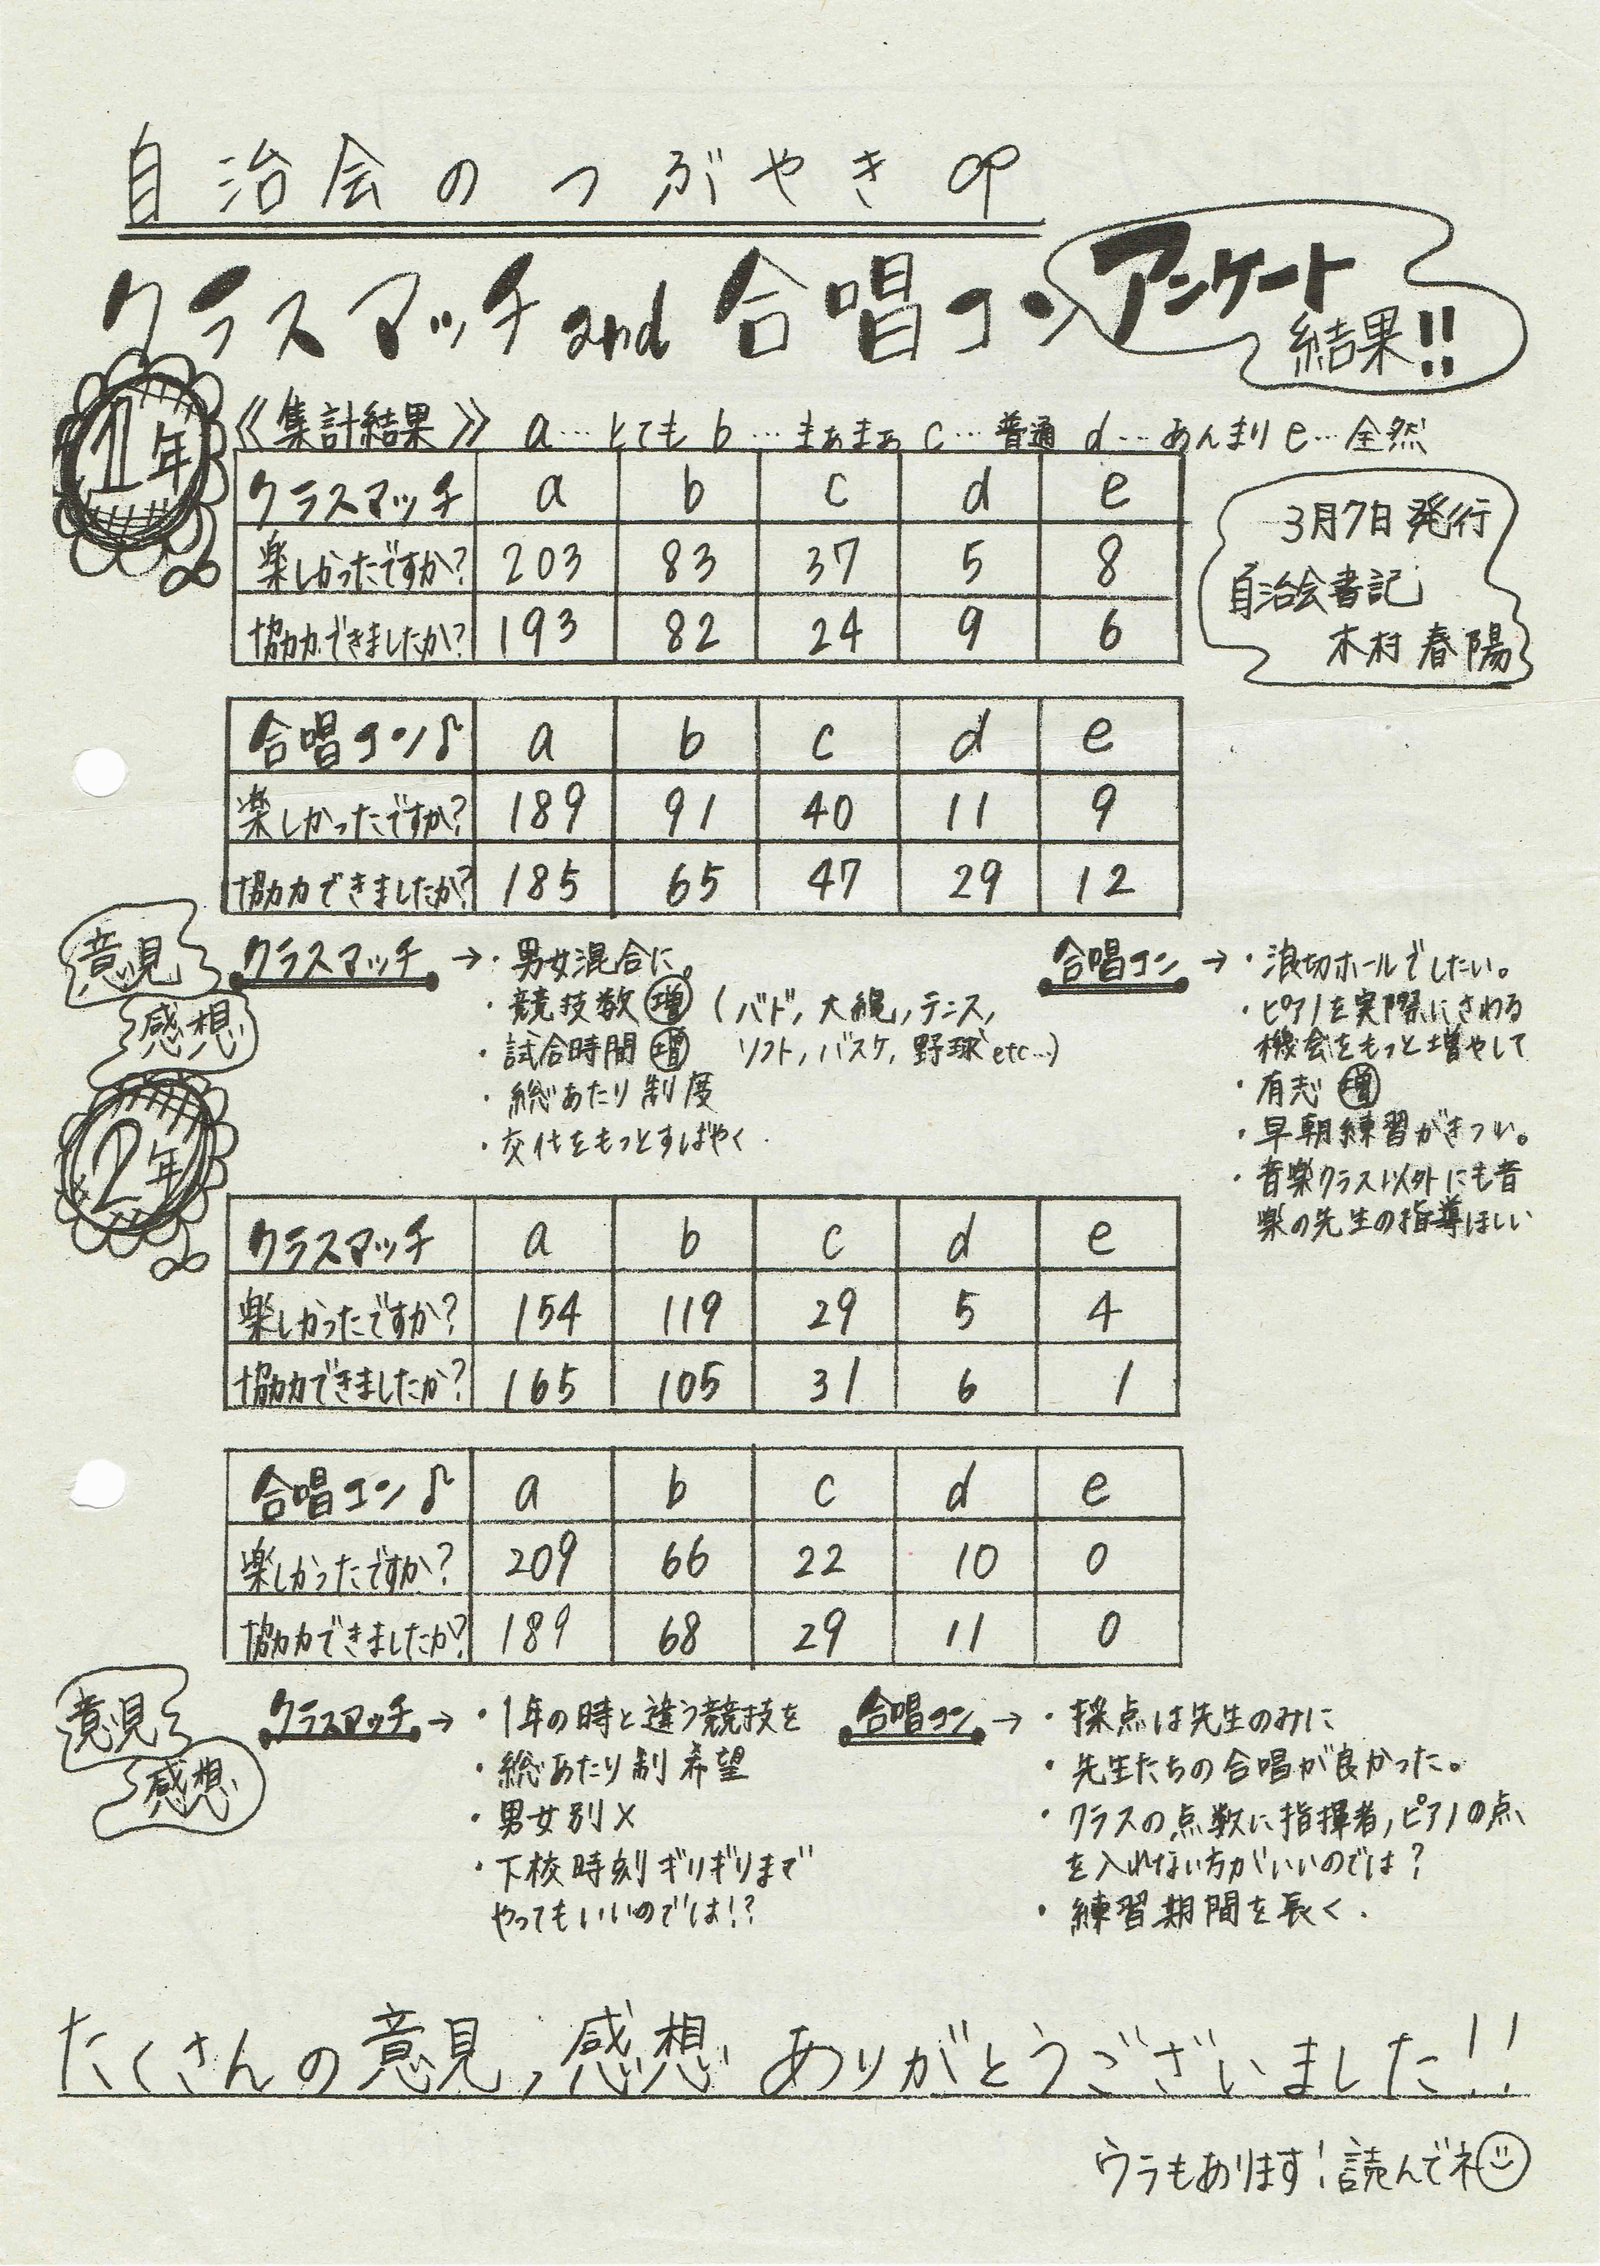 自治会のつぶやき
クラスマッチand合唱コン
アンケート
結果!!
1年
《集計結果》 a…とても b…まぁまぁ c…普通 d…あんまり e…全然
3月7日発行
自治会書記
木村春陽
クラスマッチ a b c d e
楽しかったですか? 203 83 37 5 8
協力できましたか? 193 82 24 9 6
合唱コン♪ a b c d e
楽しかったですか? 189 91 40 11 9
協力できましたか? 185 65 47 29 12
意見
感想
クラスマッチ→・男女混合に。
・競技数㊥増 (バド,大縄,テニス,
・試合時間増 ソフト,バスケ,野球etc…)
・総あたり制度
・交代をもっとすばやく.
合唱コン→・浪切ホールでしたい。
・ピアノを実際にさわる
機会をもっと増やして
・有志増
・早朝練習がきつい。
・音楽クラス以外にも音
楽の先生の指導ほしい
2年
クラスマッチ a b c d e
楽しかったですか? 154 119 29 5 4
協力できましたか? 165 105 31 6 1
合唱コン♪ a b c d e
楽しかったですか? 209 66 22 10 0
協力できましたか? 189 68 29 11 0
意見
感想
クラスマッチ→・1年の時と違う競技を
・総あたり制希望
・男女別×
・下校時刻ギリギリまで
やってもいいのでは!?
合唱コン→・採点は先生のみに
・先生たちの合唱が良かった。
・クラスの点数に指揮者,ピアノの点
を入れない方がいいのでは?
・練習期間を長く.
たくさんの意見,感想ありがとうございました!!
ウラもあります!読んでネ